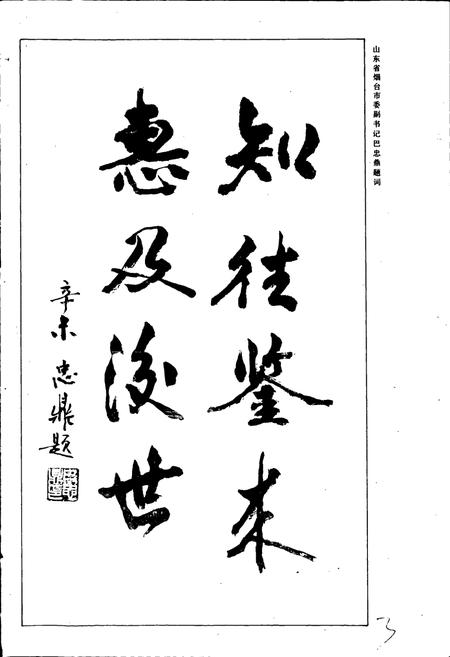 山东省烟台市委副书记巴忠鼎题词
知往鉴来
惠及後世
辛未 忠鼎题